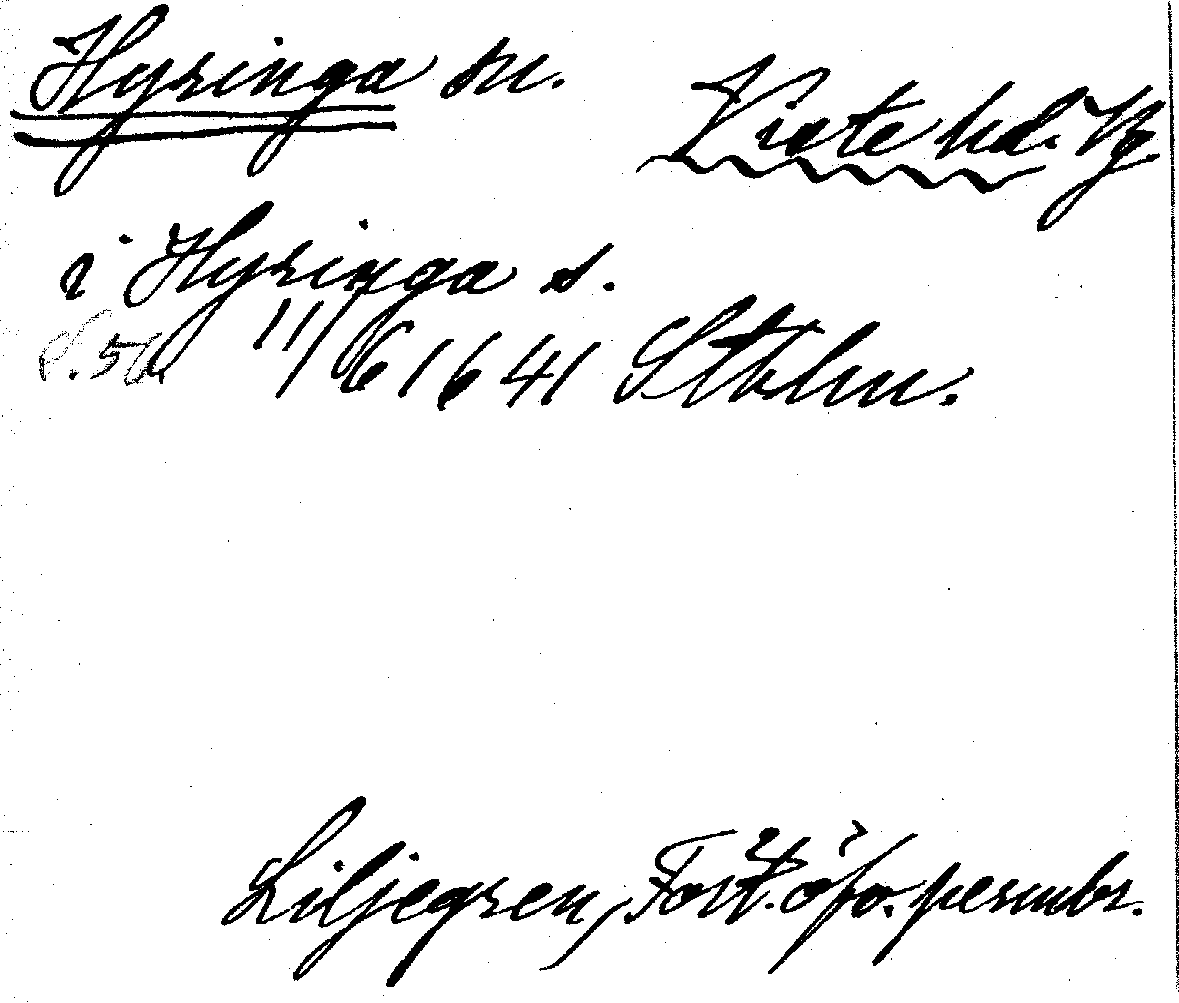 Hyringa sn.
Viste hd. Vg
i Hyringa s.
S. 56 11/6 1641 Sthlm.
Liljegren, Fört. öfv. permbr.